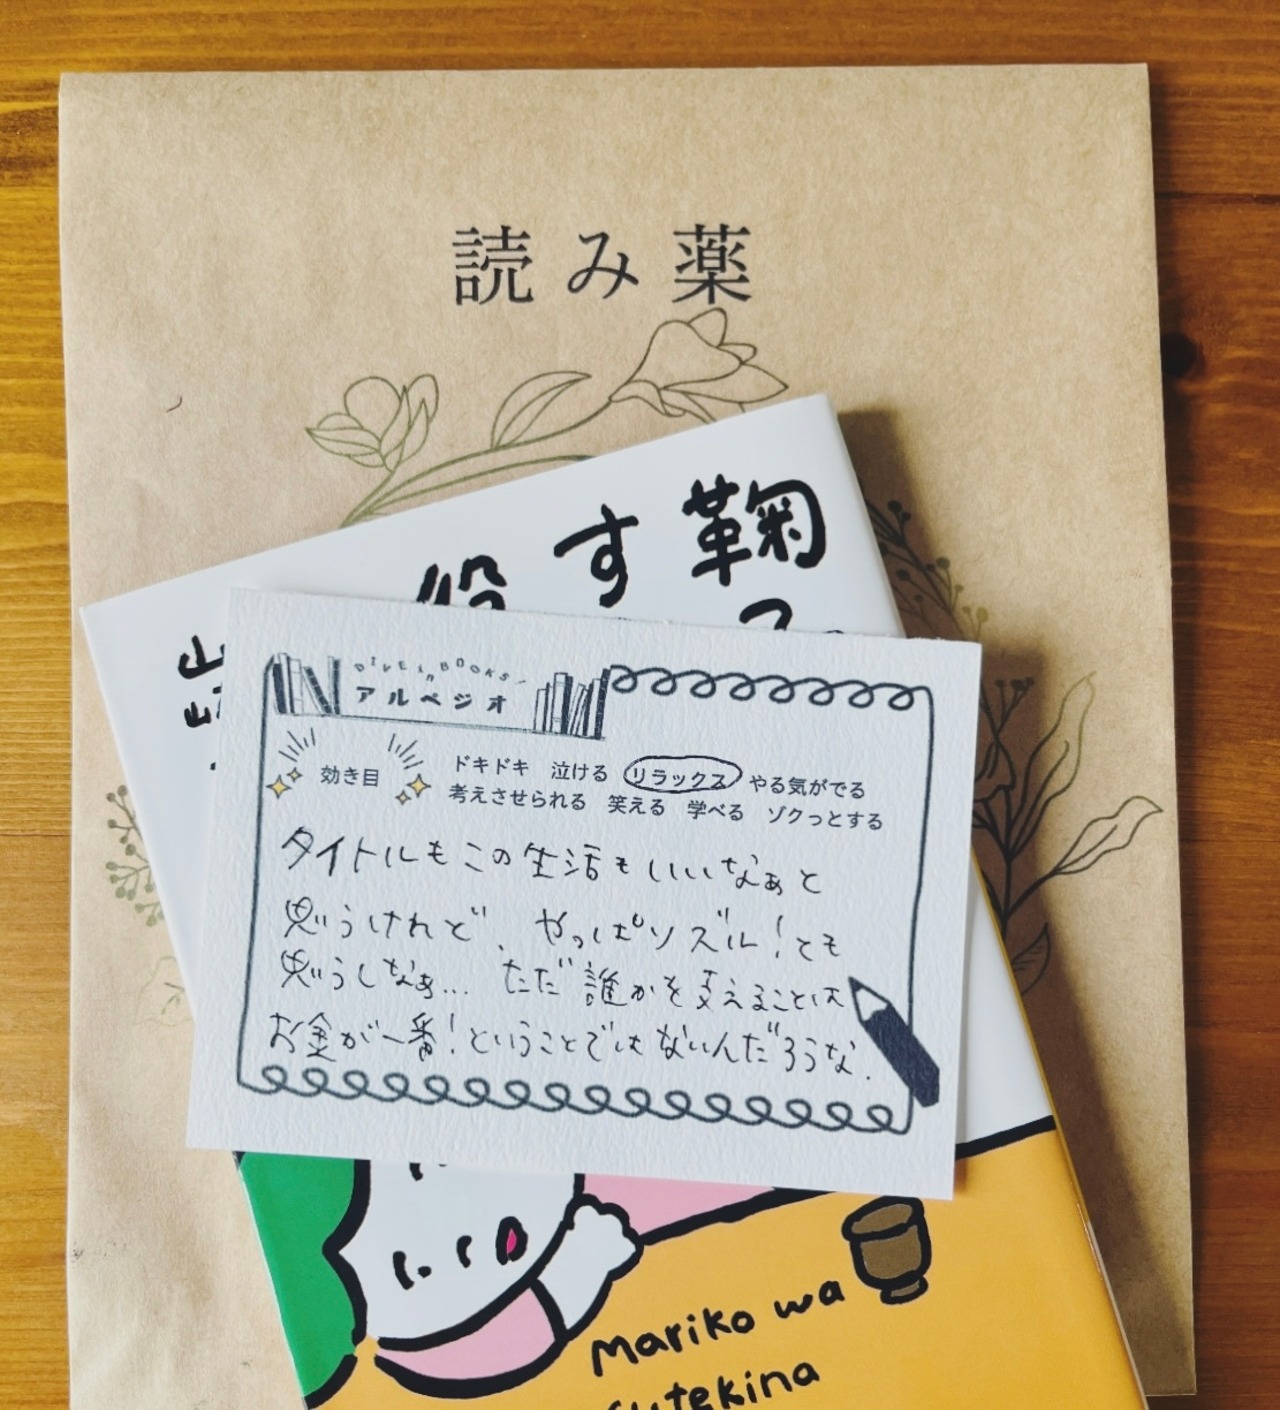 読み薬
鞠
す
役
山
DIVE in BOOKS!
アルペジオ
効き目
ドキドキ 泣ける リラックス やる気がでる
考えさせられる 笑える 学べる ゾクっとする
タイトルもこの生活もいいなぁと
思うけれど、やっぱソズル!とも
思うしなぁ… ただ誰かを支えることは
お金が一番!ということではないんだろうな.
Mariko wa
sutekina